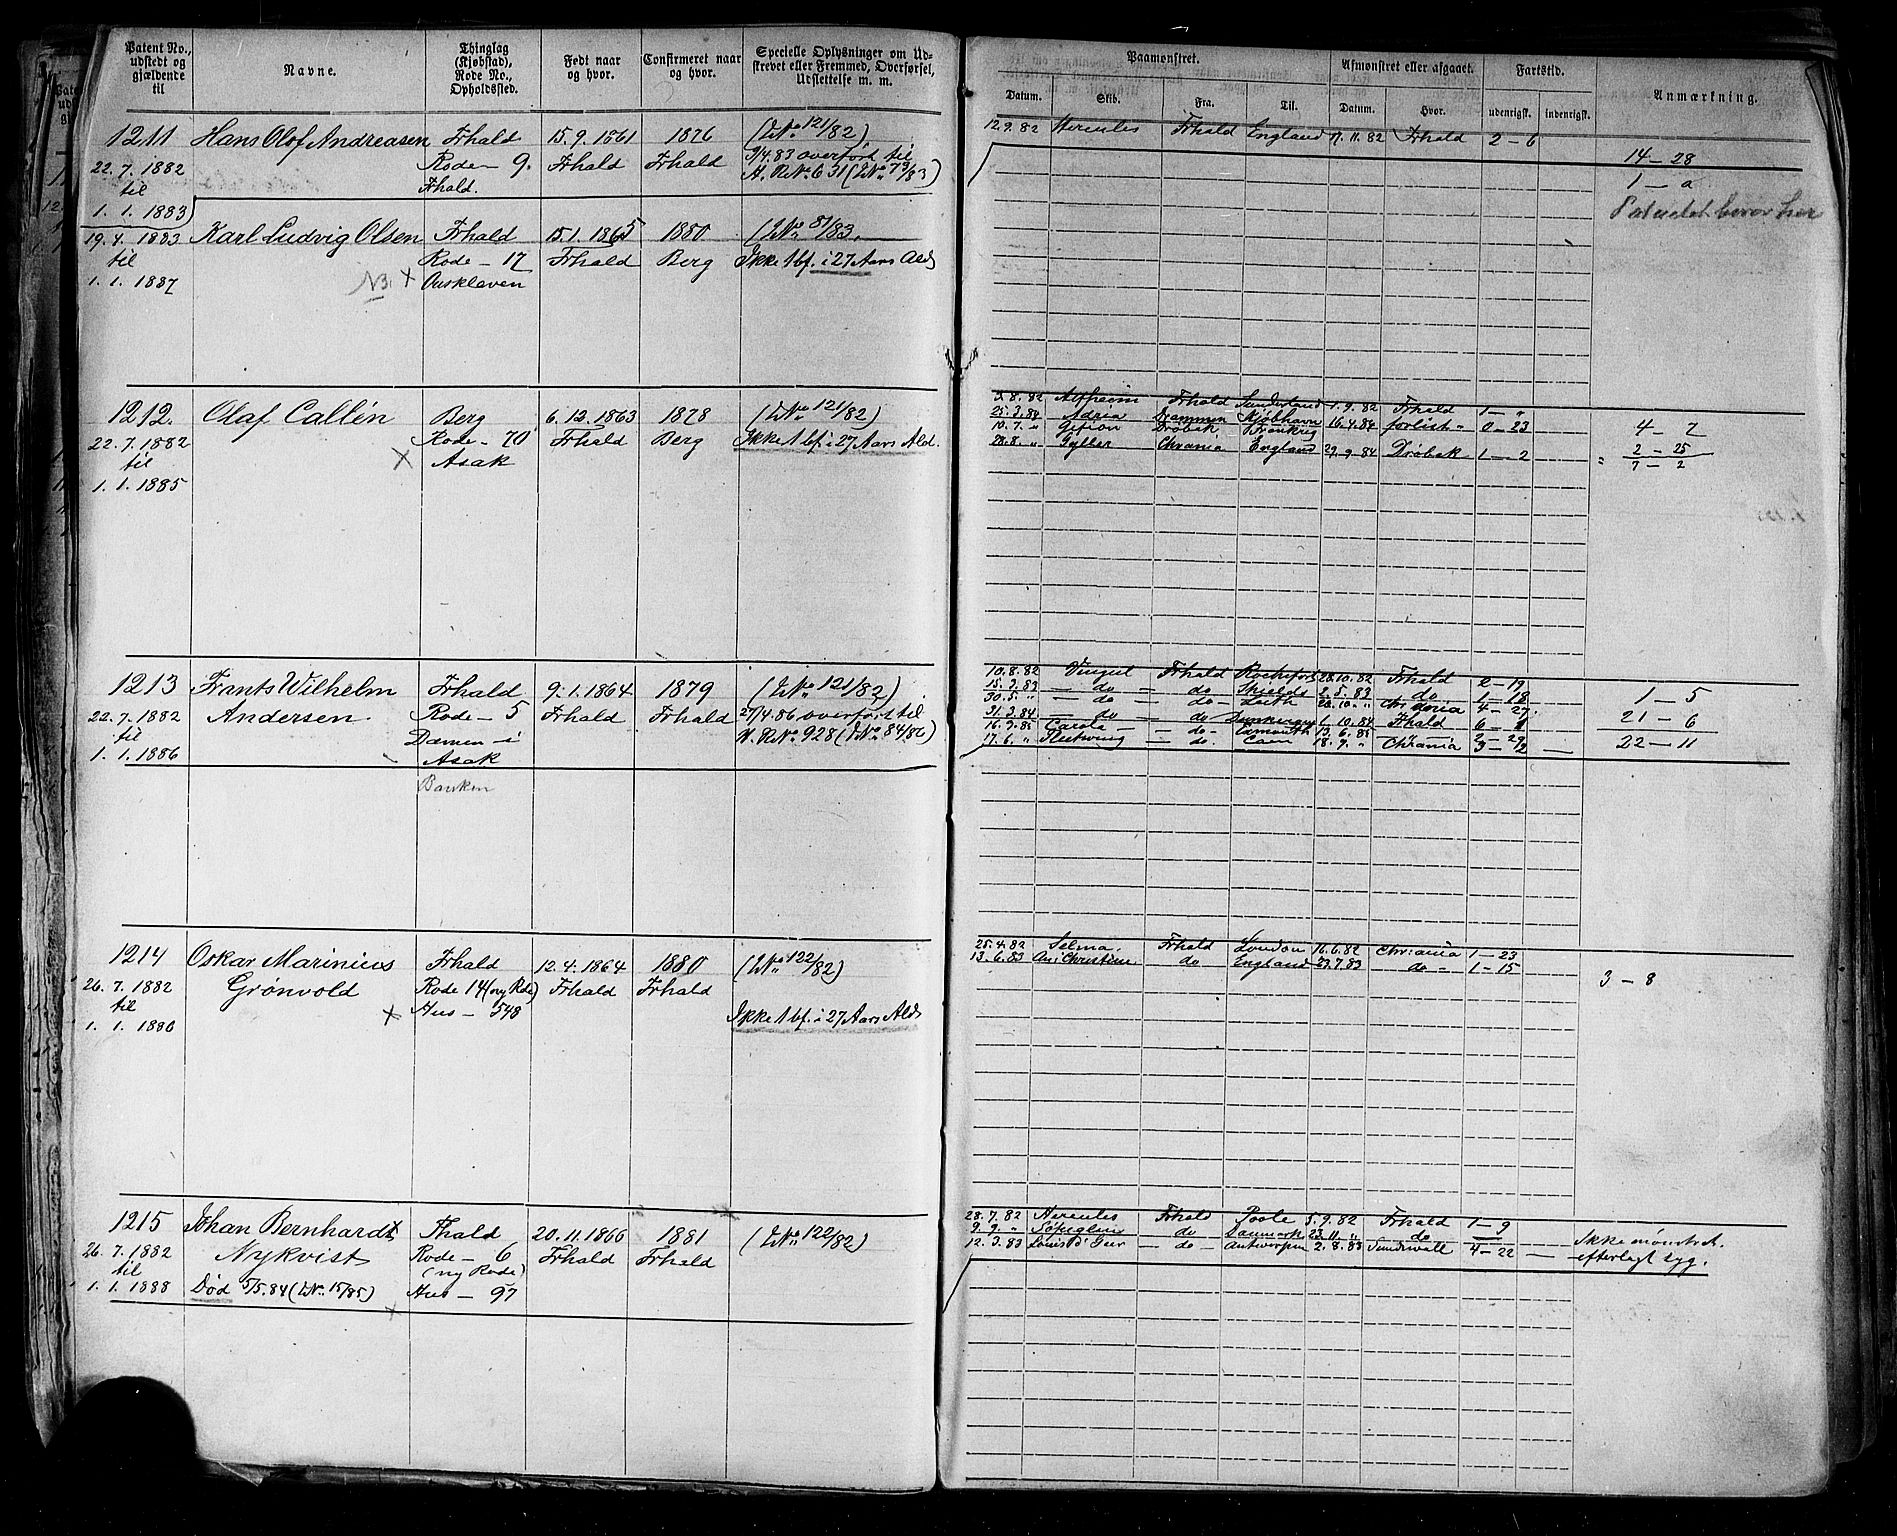 Patent No., udstedt og gjældende til
Navne.
Thinglag (Kjøbstad), Rode No., Opholdssted.
Født naar og hvor.
Confirmeret naar og hvor.
Specielle Oplysninger om Udskrevet eller Fremmed, Overførsel, Udslettelse m. m.
Paamønstret.
Afmønstret eller afgaaet.
Fartstid.
Anmærkning.
Datum. Skib. Fra. Til. Datum. Hvor. udenrigsk. indenrigsk.
1211 Hans Olof Andreasen Frhald 15.9.1861 1876 (J.No 121/82)
22.7.1882 Rode - 9. Frhald Frhald 9/4.83 overført til
til Frhald. H. R. No. 631 (J.No 79/83)
1.1.1883
12.9.82 Hercules Frhald England 17.11.82 Frhald 2 - 6
14 - 28
1 - a
19.4.1883 Karl Ludvig Olsen Frhald 15.1.1865 1880 (J.No 81/83.
til Rode - 17 Frhald Berg Ikke 1 bf. i 27 Aars Ald
1.1.1887 NB. x
1212. Olaf Callén Berg 6.12.1863 1878 (J.No 121/82)
22.7.1882 Rode - 70 Frhald Berg Ikke 1 bf. i 27 Aars Ald.
til x Asak
1.1.1885
3.8.82 Alfheim Frhald Sunderland 1.9.82 Frhald 1 - "
25.3.84 Adria Drammen Kjøbhavn 16.4.84 forlist " 0 - 23
10.7. " Gefion Drøbak Frankrig
28.8. " Gyller Chrania England 29.9.84 Drøbak 1 - 2
4 - 7
2 - 25
7 - 2
1213 Frants Wilhelm Frhald 9.1.1864 1879 (J.No 121/82)
22.7.1882 Andersen. Rode - 5 Frhald Frhald 27/4.86 overført til
til Damen - i H. R. No. 928 (J.No 84/86)
1.1.1886 Asak
Banken
10.8.82 Frhald Rochefort 28.10.82 Frhald 2 - 19
15.3.83 - do - do Shields 2.5.83 do 1 - 18
30.5. " - do - do - Leith 26.10. " Chrania 4 - 27.
31.3.84 - do - do Dunkerque 1.10.84 Frhald 6 - 1
16.3.85 Carola - do - 13.6.85 " 2 - 29
17.6. " - do. Caen 18.9. " Chrania 3 - 2
1 - 5
21 - 6
22 - 11
1214 Oskar Marinius Frhald 12.4.1864 1880 (J.No 122/82)
26.7.1882 Grønvold Rode 14 (ny Rde) Frhald Frhald
til x Hus - 548 Ikke 1 bf. i 27 Aars Ald
1.1.1880
25.4.82 Selma. Frhald London 16.6.82 Chrania 1 - 23
13.6.83 An: Christine do England 23.7.83 do - 1 - 15
3 - 8
1215 Johan Bernhardt Fhald 20.11.1866 1881 (J.No 122/82)
26.7.1882 Nykvist Rode - 6 Frhald Frhald
til (ny Rode)
1.1.1888 Død 5/5.84 (J.No. 15/85) Hus - 97
x
28.7.82 Hercules Frhald Poole 5.9.82 Frhald 1 - 9
9.9. " do Danmark 23.11. " do
12.3.83 - do - Antwerpen 2.8.83 Sundswall 4 - 22 -
Ikke mønstret.
efterlagt syg.